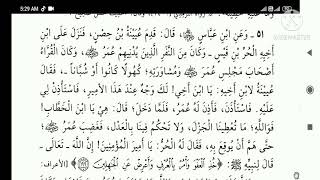 5:29 AM
٥١ - وَعَنِ ابْنِ عَبَّاسٍ ﷺ، قَالَ: قَدِمَ عُيَيْنَةُ بْنُ حِصْنٍ، فَنَزَلَ عَلَى ابْنِ
أَخِيهِ الْحُرِّ بْنِ قَيْسٍ - وَكَانَ مِنَ النَّفَرِ الَّذِينَ يُدْنِيهِمْ عُمَرُ، وَكَانَ الْقُرَّاءُ
أَصْحَابَ مَجْلِسِ عُمَرَ وَمُشَاوَرَتِهِ، كُهُولًا كَانُوا أَوْ شُبَّانًا - فَقَالَ
عُيَيْنَةُ لِابْنِ أَخِيهِ: يَا ابْنَ أَخِي! لَكَ وَجْهٌ عِنْدَ هَذَا الأَمِيرِ، فَاسْتَأْذِنْ لِي
عَلَيْهِ. فَاسْتَأْذَنَ، فَأَذِنَ لَهُ عُمَرُ، فَلَمَّا دَخَلَ؛ قَالَ: هِيْ يَا ابْنَ الْخَطَّابِ!
فَوَاللَّهِ! مَا تُعْطِينَا الْجَزْلَ، وَلَا تَحْكُمُ فِينَا بِالْعَدْلِ، فَغَضِبَ عُمَرُ
حَتَّى هَمَّ أَنْ يُوقِعَ بِهِ، فَقَالَ لَهُ الْحُرُّ: يَا أَمِيرَ الْمُؤْمِنِينَ! إِنَّ اللَّهَ - تَعَالَى -
قَالَ لِنَبِيِّهِ ﷺ: ﴿خُذِ الْعَفْوَ وَأْمُرْ بِالْعُرْفِ وَأَعْرِضْ عَنِ الْجَاهِلِينَ﴾ [الأعراف: